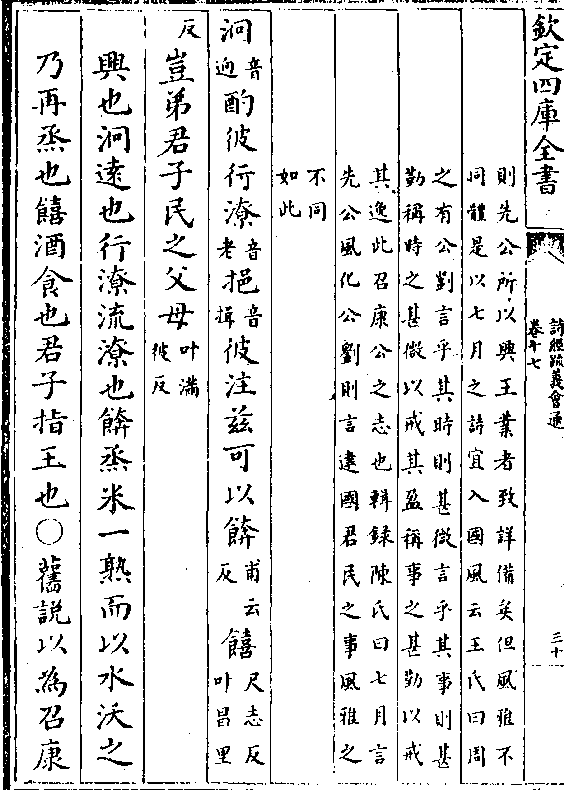 欽定四庫全書
詩經疏義會通
卷十七
三十
則先公所以興王業者致詳備矣但風雅不
同體是以七月之詩宜入國風云王氏曰周
之有公劉言乎其時則甚微言乎其事則甚
勤稱時之甚微以戒其盈稱事之甚勤以戒
其逸此召康公之志也輯錄陳氏曰七月言
先公風化公劉則言建國君民之事風雅之
不同
如此
泂音迥酌彼行潦音老挹音揖彼注兹可以餴甫云反饎尺志反叶昌里
反豈弟君子民之父母叶滿彼反
興也泂逺也行潦流潦也餴烝米一熟而以水沃之
乃再烝也饎酒食也君子指王也○舊說以為召康